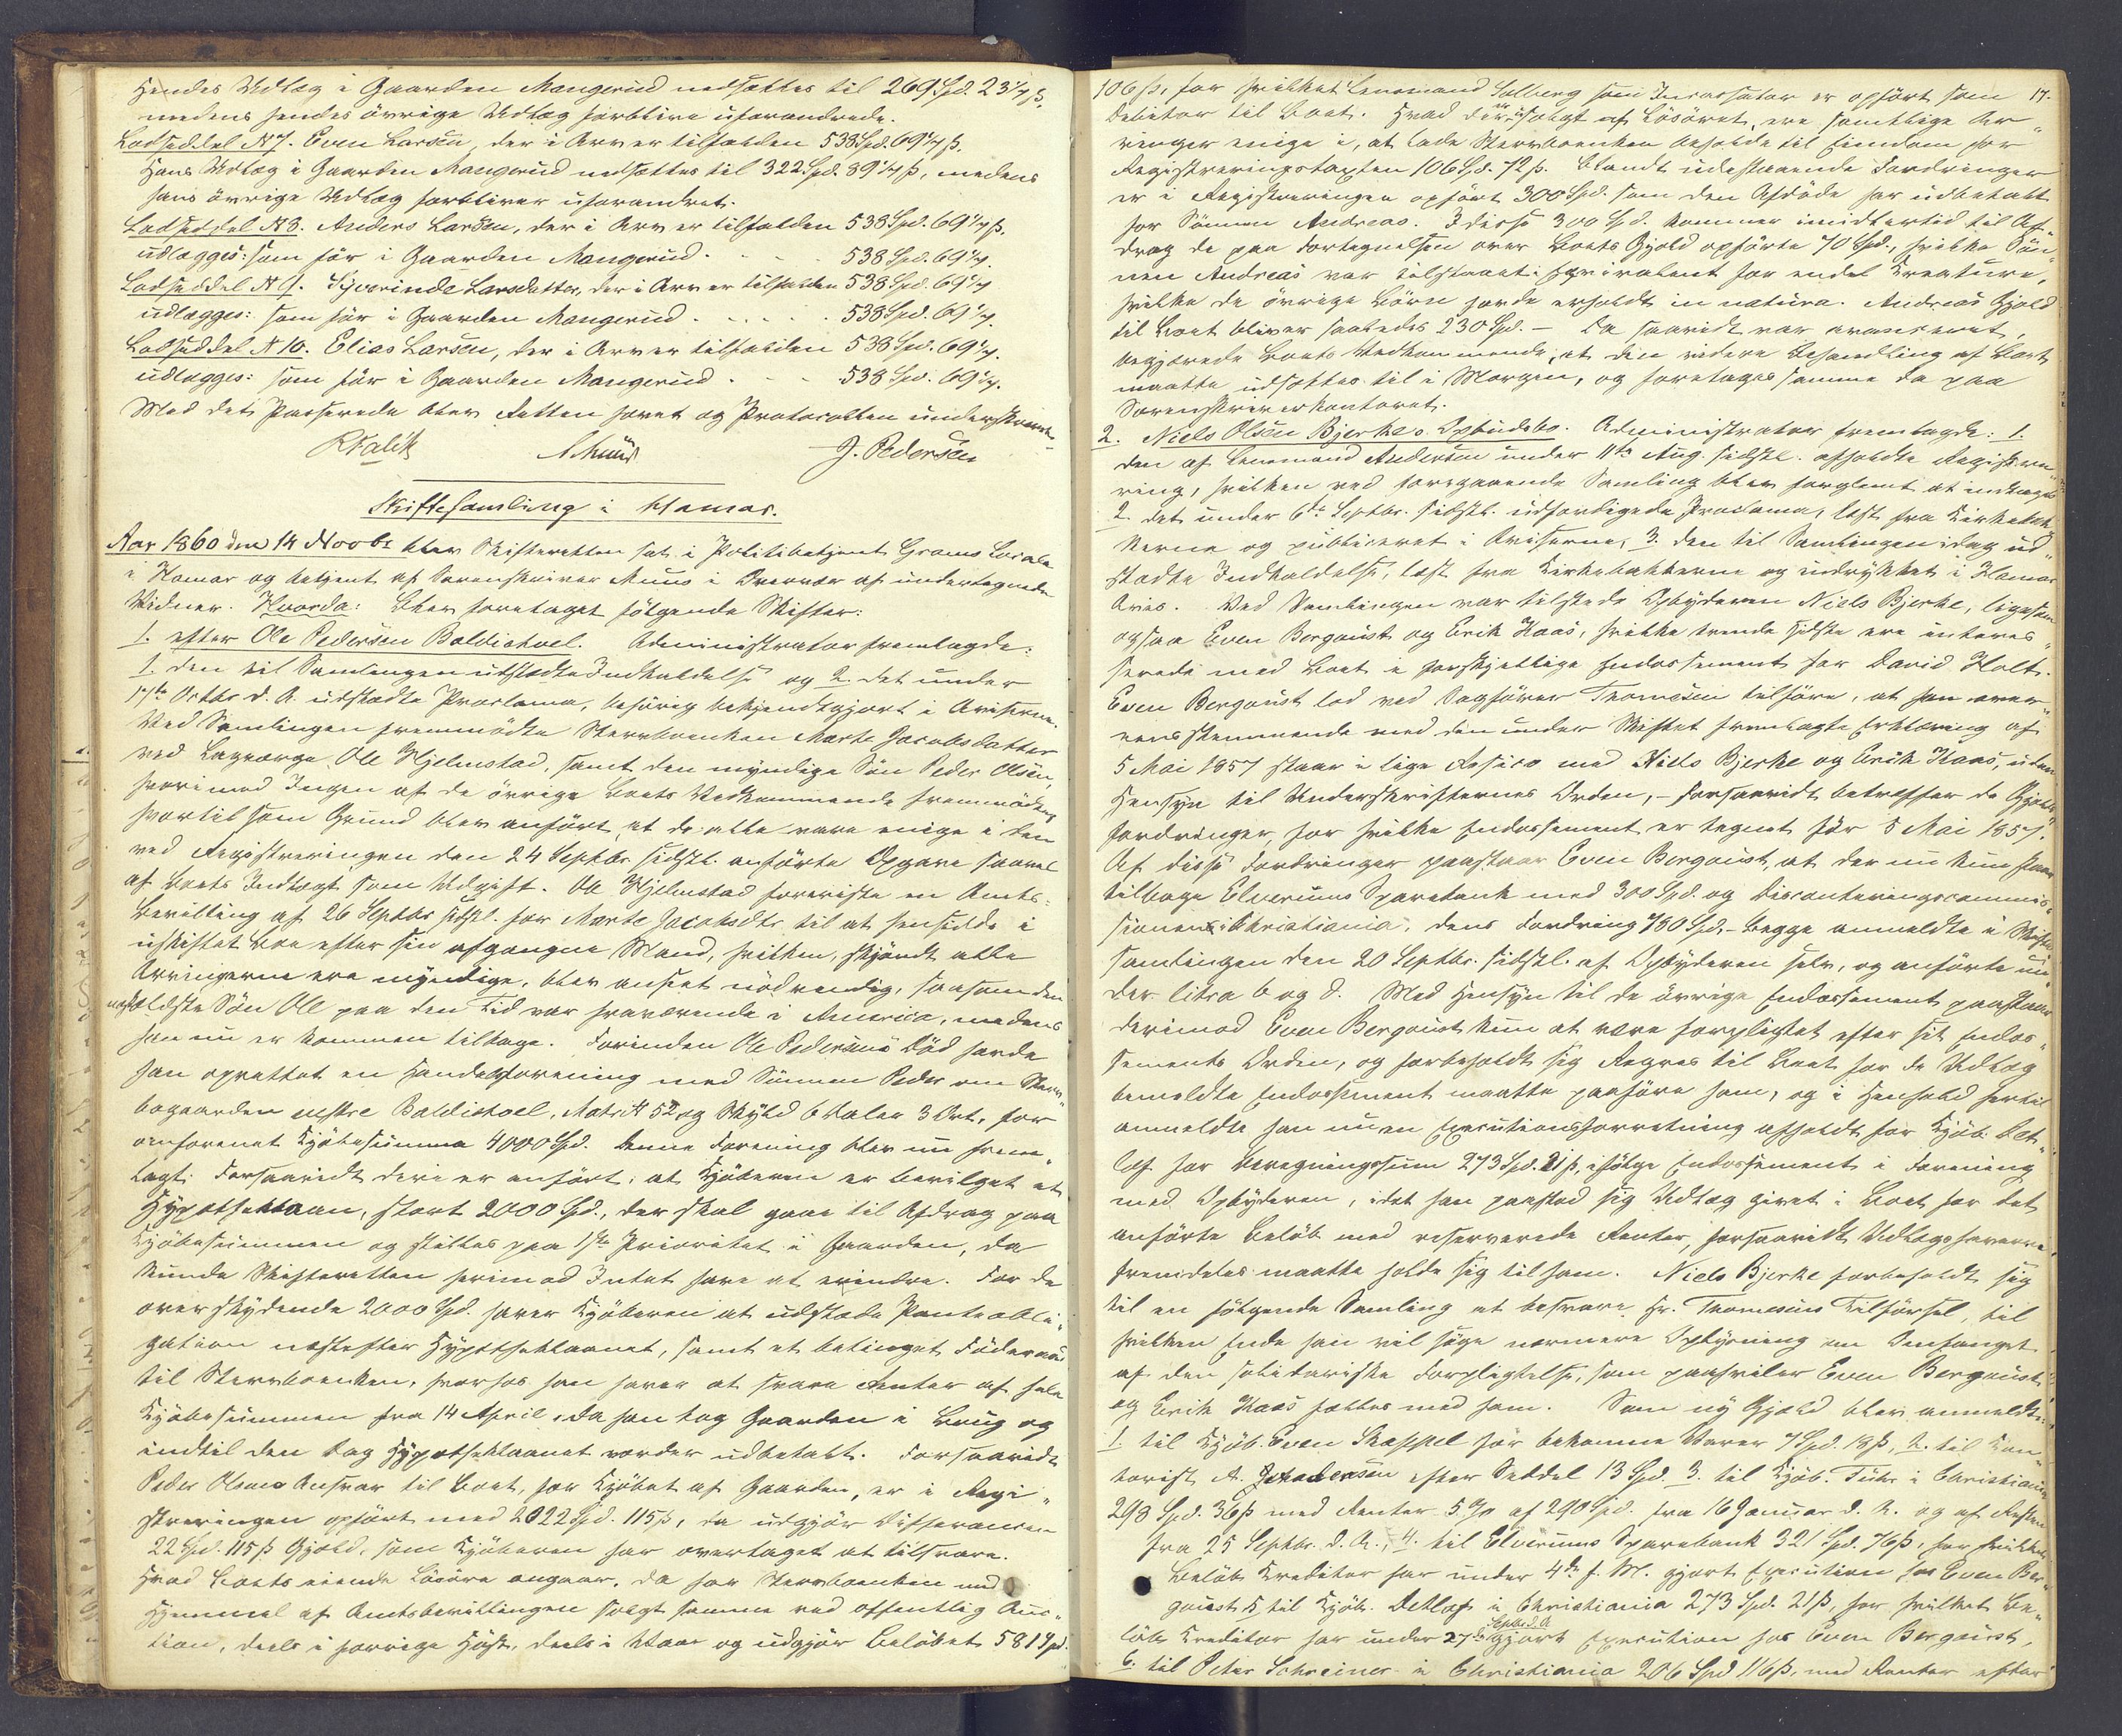 Hendes Udlæg i Gaarden Mangerud nedsættes til 269 Spd. 23 1/4 ß,
medens hendes øvrige Udlæg forblive uforandrede.
Lodseddel N 7. Even Larsen, der i Arv er tilfalden 538 Spd. 69 1/4 ß.
Hans Udlæg i Gaarden Mangerud nedsættes til 322 Spd. 89 1/4 ß, medens
hans øvrige Udlæg forbliver uforandret.
Lodseddel N 8. Anders Larsen, der i Arv er tilfalden 538 Spd. 69 1/4 ß.
udlægges: som før i Gaarden Mangerud . . . 538 Spd. 69 1/4.
Lodseddel N 9. Syverinde Larsdatter, der i Arv er tilfalden 538 Spd. 69 1/4
udlægges: som før i Gaarden Mangerud . . . . . 538 Spd. 69 1/4.
Lodseddel N 10. Elias Larsen, der i Arv er tilfalden 538 Spd. 69 1/4.
udlægges: som før i Gaarden Mangerud . . . 538 Spd. 69 1/4.
Med det Passerede blev Retten hævet og Protocollen underskrevet.
AMuus J. Pedersen
Skiftesamling i Hamar.
Aar 1860 den 14 Novbr blev Skifteretten sat i Politibetjent Grams Locale
i Hamar og betjent af Sorenskriver Muus i Overvær af undertegnede
Vidner. Hvorda: Blev foretaget følgende Skifter:
1. efter Ole Pedersen Baldishoel. Administrator fremlagde:
1. den til Samlingen udstedte Indkaldelse og 2. det under
17de Octbr d. A. udstedte Proclama, behørig bekjendtgjort i Aviserne.
Ved Samlingen fremmødte Stervboenken Marte Jacobsdatter
ved Laugværge Ole Hjelmstad, samt den myndige Søn Peder Olsen,
hvorimod Ingen af de øvrige Boets Vedkommende fremmødte,
hvortil som Grund blev anført, at de alle vare enige i den
ved Registreringen den 24 Septbr. sidstl. anførte Opgave saavel
af Boets Indtægt som Udgift. Ole Hjelmstad foreviste en Amts-
bevilling af 26 Septbr sidstl. for Marte Jacobsdtr til at hensidde i
uskiftet Boe efter sin afgangne Mand, hvilken, skjøndt alle
Arvingerne ere myndige, blev anseet nødvendig, saasom den
næstældste Søn Ole paa den Tid var fraværende i America, medens
han nu er kommen tilbage. Forinden Ole Pedersens Død havde
han oprettet en Handelsforening med Sønnen Peder om Stervbo-
gaarden vestre Baldishoel, Matr. N 52 og Skyld 6 Daler 3 Ort, for
omforenet Kjøbesumma 4000 Spd. Denne Forening blev nu frem-
lagt. Forsaavidt deri er anført, at Kjøberen er bevilget et
Hypothеklaan, stort 2000 Spd., der skal gaae til Afdrag paa
Kjøbesummen og stilles paa 1ste Prioritet i Gaarden, da
kunde Skifteretten herimod Intet have at erindre. For de
overskydende 2000 Spd. haver Kjøberen at udstede Panteobli-
gation næstefter Hypotheklaanet, samt et betinget Føderaad
til Stervboenken, hvorhos han haver at svare Renter af hele
Kjøbesummen fra 14 April, da han tog Gaarden i Brug og
indtil den Dag Hypotheklaanet vorder udbetalt. Forsaavidt
Peder Olsens Ansvar til Boet, for Kjøbet af Gaarden, er i Regi-
streringen opført med 2022 Spd. 115 ß, da udgjør Differancen
22 Spd. 115 ß Gjæld, som Kjøberen har overtaget at tilsvare.
Hvad Boets eiende Løsøre angaaer, da har Stervboenken med
Hjemmel af Amtsbevillingen solgt samme ved offentlig Auc-
tion, deels i forrige Høst, deels i Vaar og udgjør Beløbet 581 Spd.
17.
106 ß, for hvilket Lensmand Solberg som Incassator er opført som
Debitor til Boet. Hvad der er usolgt af Løsøret, ere samtlige Ar-
vinger enige i, at lade Stervboenken beholde til Eiendom for
Registreringstaxten 106 Spd. 72 ß. Blandt udestaaende Fordringer
er i Registreringen opført 300 Spd. som den Afdøde har udbetalt
for Sønnen Andreas. I disse 300 Spd. kommer imidlertid til Af-
drag de paa Fortegnelsen over Boets Gjæld opførte 70 Spd., hvilke Søn-
nen Andreas var tilstaaet i Æqvivalent for endel Creature,
hvilke de øvrige Børn havde erholdt in natura. Andreas Gjæld
til Boet bliver saaledes 230 Spd. – Da saavidt var avanceret,
begjærede Boets Vedkommende, at den videre Behandling af Boet
maatte udsættes til i Morgen, og foretages samme da paa
Sorenskriverkontoret.
2. Niels Olsen Bjerkes Opbudsbo. Administrator fremlagde: 1.
den af Lensmand Andersen under 11te Aug. sidstl. afholdte Registre-
ring, hvilken ved foregaaende Samling blev forglemt at indtages
2. det under 6te Septbr. sidstl. udfærdigede Proclama, læst fra Kirkebak-
kerne og publiceret i Aviserne, 3. den til Samlingen idag ud-
stedte Indkaldelse, læst fra Kirkebakkerne og indrykket i Hamar
Avis. Ved Samlingen var tilstede Opbyderen Niels Bjerke, ligesom
ogsaa Even Bergqust og Erik Haas, hvilke tvende sidste ere interes-
serede med Boet i forskjellige Endossement for David Holt.
Even Bergqust lod ved Sagfører Thomesen tilføre, at han over-
eensstemmende med den under Skiftet fremlagte Erklæring af
5 Mai 1857 staar i lige Risico med Niels Bjerke og Erik Haas, uden
Hensyn til Underskrifternes Orden, – forsaavidt betræffer de Gjælds-
fordringer, for hvilke Endossement er tegnet før 5 Mai 1857.
Af disse Fordringer paastaar Even Bergqust, at der nu kun staar
tilbage Elverums Sparebank med 300 Spd. og Disconteringscommis-
sionen i Christiania, dens Fordring 780 Spd. – begge anmeldte i Skifte-
samlingen den 20 Septbr. sidstl. af Opbyderen selv, og anførte un-
der litra b og d. Med Hensyn til de øvrige Endossement paastaar
derimod Even Bergqust kun at være forpligtet efter sit Endos-
sements Orden, og forbeholdt sig Regres til Boet for de Udlæg
bemeldte Endossement maatte paaføre ham, og i Henhold hertil
anmeldte han nu en Executionsforretning afholdt for Kjøb. Det-
lof for Beregningssum 273 Spd. 21 ß, ifølge Endossement i Forening
med Opbyderen, idet han paastod sig Udlæg givet i Boet for det
anførte Beløb med reserverede Renter, forsaavidt Udlægshaverne
fremdeles maatte holde sig til ham. Niels Bjerke forbeholdt sig
til en følgende Samling at besvare Hr. Thomesens Tilførsel, til
hvilken Ende han vil søge nærmere Oplysning om Omfanget
af den solidariske Forpligtelse, som paahviler Even Bergqust
og Erik Haas fælles med ham. Som ny Gjæld blev anmeldt:
1 til Kjøb. Even Skappel for bekomne Varer 7 Spd. 18 ß, 2. til Con-
torist A. efter Seddel 13 Spd. 3. til Kjøb. Tühr i Christiania
298 Spd. 36 ß med Renter 5 % af 290 Spd. fra 16 Januar d. A. og af Resten
fra 25 Septbr. d. A., 4. til Elverums Sparebank 321 Spd. 76 ß, for hvilket
Beløb Kreditor har under 4de f. M. gjort Execution hos Even Ber-
gqust 5. til Kjøb. Detlof i Christiania 273 Spd. 21 ß, for hvilket Be-
løb Kreditor har under 27de Septbr. d. A gjort Execution hos Even Bergqust,
6. til Peter Schreiner i Christiania 206 Spd 116 ß, med Renter efter